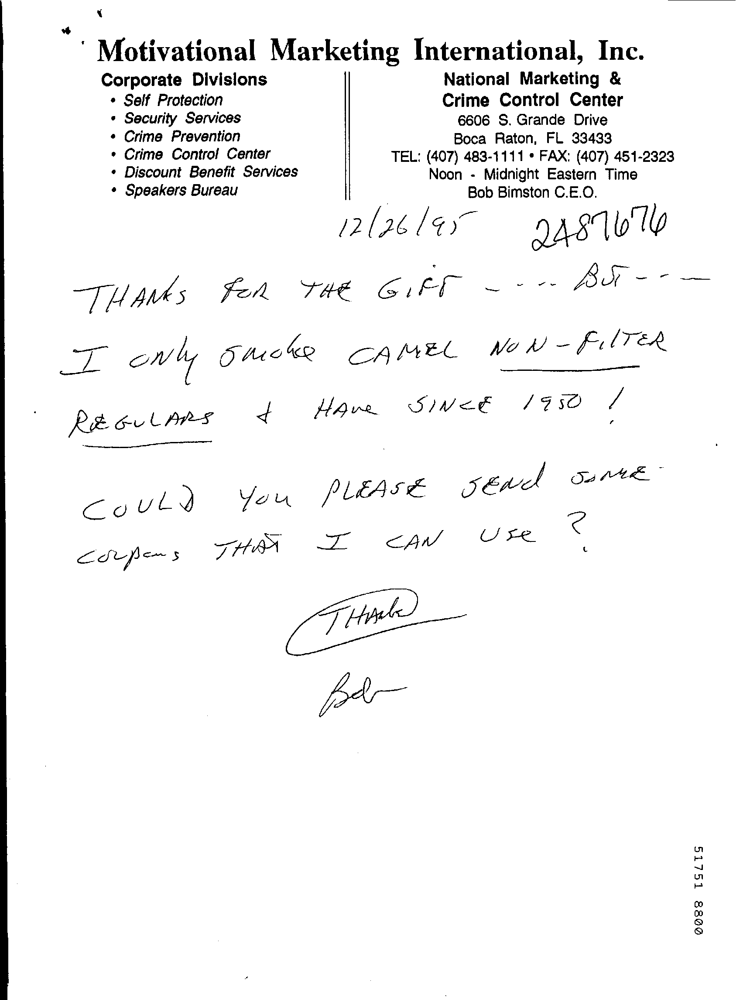 Motivational Marketing International, Inc.
Corporate Divisions
• Self Protection
• Security Services
• Crime Prevention
• Crime Control Center
• Discount Benefit Services
• Speakers Bureau
National Marketing &
Crime Control Center
6606 S. Grande Drive
Boca Raton, FL 33433
TEL: (407) 483-1111 • FAX: (407) 451-2323
Noon - Midnight Eastern Time
Bob Bimston C.E.O.
12/26/95 2487676
THANKS FOR THE GIFT - - - - BUT - - -
I ONLY SMOKE CAMEL NON-FILTER
REGULARS & HAVE SINCE 1950 !
COULD YOU PLEASE SEND SOME
COUPONS THAT I CAN USE ?
THANKS
Bob
51751 8800